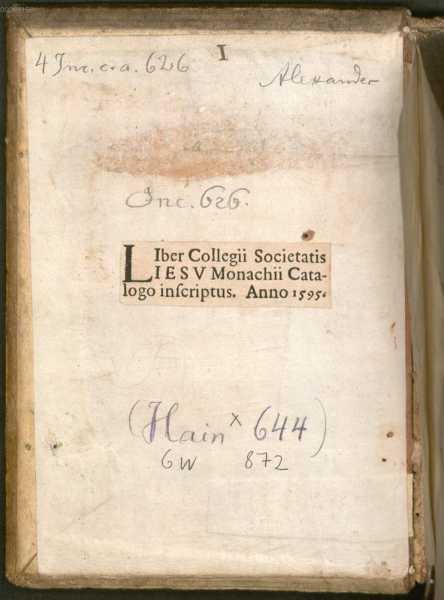 I
4 Inc. c. a. 626
Alexander
Inc. 626.
LIber Collegii Societatis
IESV Monachii Cata-
logo inſcriptus. Anno 1595.
(Hain x 644)
GW 872